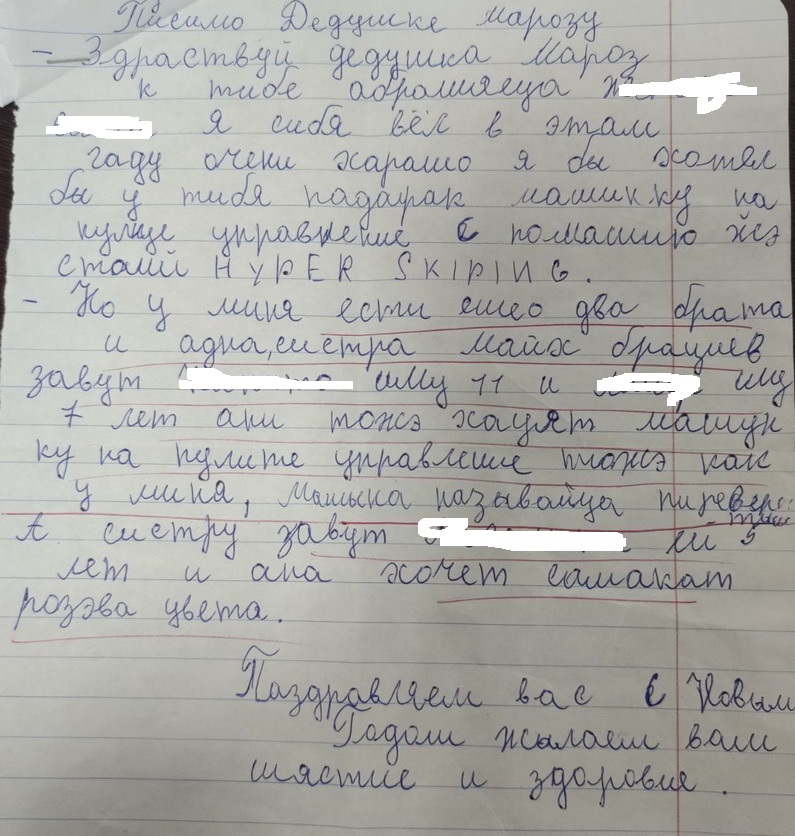 Писмо Дедушке марозу
- Здраствуй дедушка мароз
к тибе абрашяеца
Я сибя вёл в этам
гаду очени харашо я бы хотял
бы у тибя падарак машинку на
кулще управнение с помашию йсэ
сталй HYPER SKIPING.
- Но у миня ести ешео два брата
и адна, систра майх брациев
завут иму 11 и иму
7 лет ани тожэ хацят машун
ку на пулите управление тожэ как
у миня, Машына называйца пиревёро
тыш
А систру завут ей 5
лет и ана хочет самакат
розэва цвета.
Паздравляем вас с Новым
Годом жылаем вам
шястие и здоровие.